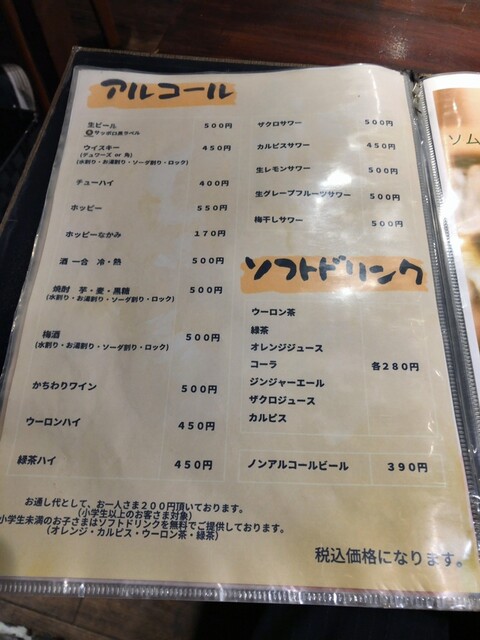 アルコール
生ビール ５００円
サッポロ黒ラベル
ウイスキー ４５０円
(デュワーズ or 角)
(水割り・お湯割り・ソーダ割り・ロック)
チューハイ ４００円
ホッピー ５５０円
ホッピーなかみ １７０円
酒 一合 冷・熱 ５００円
焼酎 芋・麦・黒糖 ５００円
(水割り・お湯割り・ソーダ割り・ロック)
梅酒 ５００円
(水割り・お湯割り・ソーダ割り・ロック)
かちわりワイン ５００円
ウーロンハイ ４５０円
緑茶ハイ ４５０円
ザクロサワー ５００円
カルピスサワー ４５０円
生レモンサワー ５００円
生グレープフルーツサワー ５００円
梅干しサワー ５００円
ソフトドリンク
ウーロン茶
緑茶
オレンジジュース
コーラ 各２８０円
ジンジャーエール
ザクロジュース
カルピス
ノンアルコールビール ３９０円
お通し代として、お一人さま２００円頂いております。
(小学生以上のお客さま対象)
小学生未満のお子さまはソフトドリンクを無料でご提供しております。
(オレンジ・カルピス・ウーロン茶・緑茶)
税込価格になります。
ソム